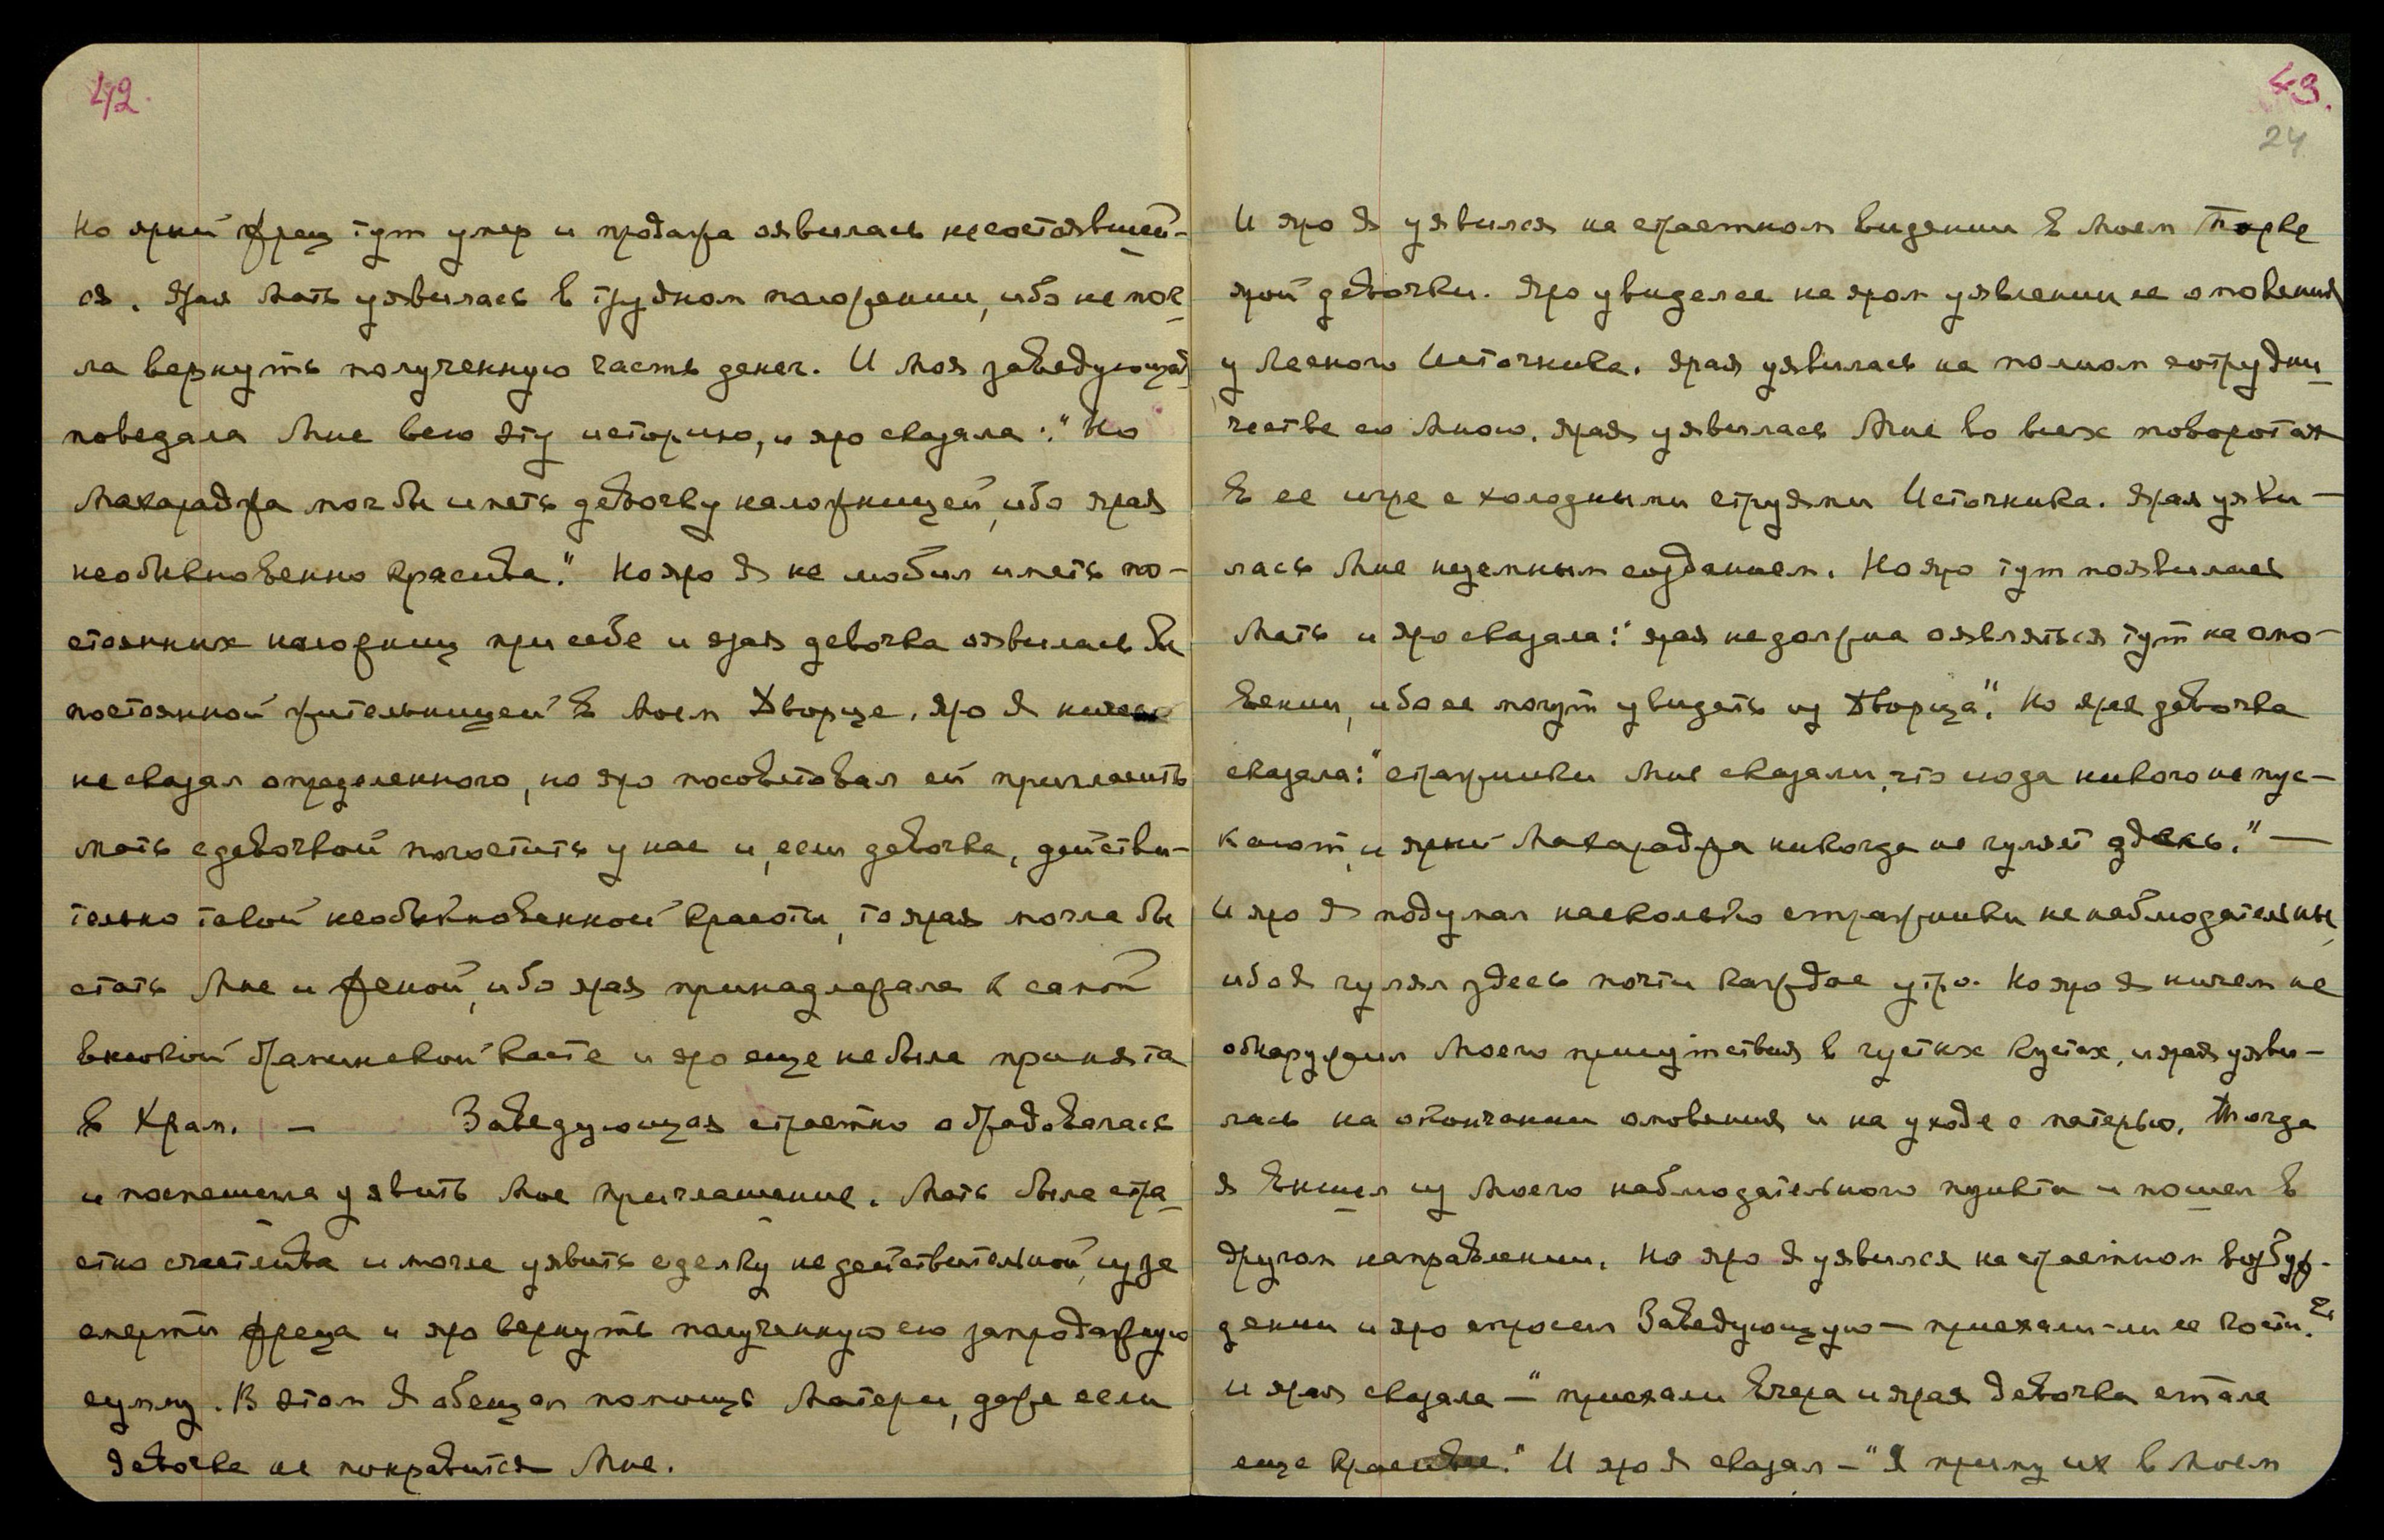 42.
Но ярый жрец тут умер и продажа оявилась несостоявшей-
ся. Ярая Мать уявилась в трудном положении, ибо не мог
ла вернуть полученную часть денег. И Моя заведующая
поведала Мне всю эту историю, и яро сказала: "Но
Махараджа мог бы иметь девочку наложницей, ибо ярая
необыкновенно красива." Но яро Я не любил иметь по-
стоянных наложниц при себе и ярая девочка оявилась бы
постоянной жительницей в Моем Дворце. Яро Я ничего
не сказал определенного, но яро посоветовал ей пригласить
мать с девочкой погостить у нас и, если девочка, действи-
тельно такой необыкновенной красоты, то ярая могла бы
стать Мне и женой, ибо ярая принадлежала к самой
высокой браминской касте и яро еще не была принята
в Храм. — Заведующая страстно обрадовалась
и поспешила уявить Мое приглашение. Мать была стра
стно счастлива и могла уявить сделку недействительной, из за
смерти жреца и яро вернуть полученную ею запродажную
сумму. В этом Я обещал помощь Матери, даже если
девочка не понравится Мне.
43.
24
И яро Я уявился на страстном видении в Моем Парке
ярой девочки. Яро увидел ее на яром уявлении ее омовения
у Лесного Источника. Ярая уявилась на полном сотрудни
честве со Мною. Ярая уявилась Мне во всех поворотах
в ее игре с холодными струями Источника. Ярая уяви-
лась Мне неземным созданием. Но яро тут появилась
Мать и яро сказала: "ярая не должна оявляться тут на омо-
вении, ибо ее могут увидеть из Дворца". Но ярая девочка
сказала: "стражники Мне сказали, что сюда никого не пус-
кают, и ярый Махараджа никогда не гуляет здесь." —
И яро Я подумал насколько стражники не наблюдательны,
ибо Я гулял здесь почти каждое утро. Но яро Я ничем не
обнаружил Моего присутствия в густых кустах, и ярая уяви-
лась на окончании омовения и на уходе с матерью. Тогда
Я вышел из Моего наблюдательного пункта и пошел в
другом направлении. Но яро Я уявился на страстном возбуж-
дении и яро спросил Заведующую — приехали-ли ее гости?
И ярая сказала — "приехали вчера и ярая девочка стала
еще красивее." И яро Я сказал — "Я приму их в Моем